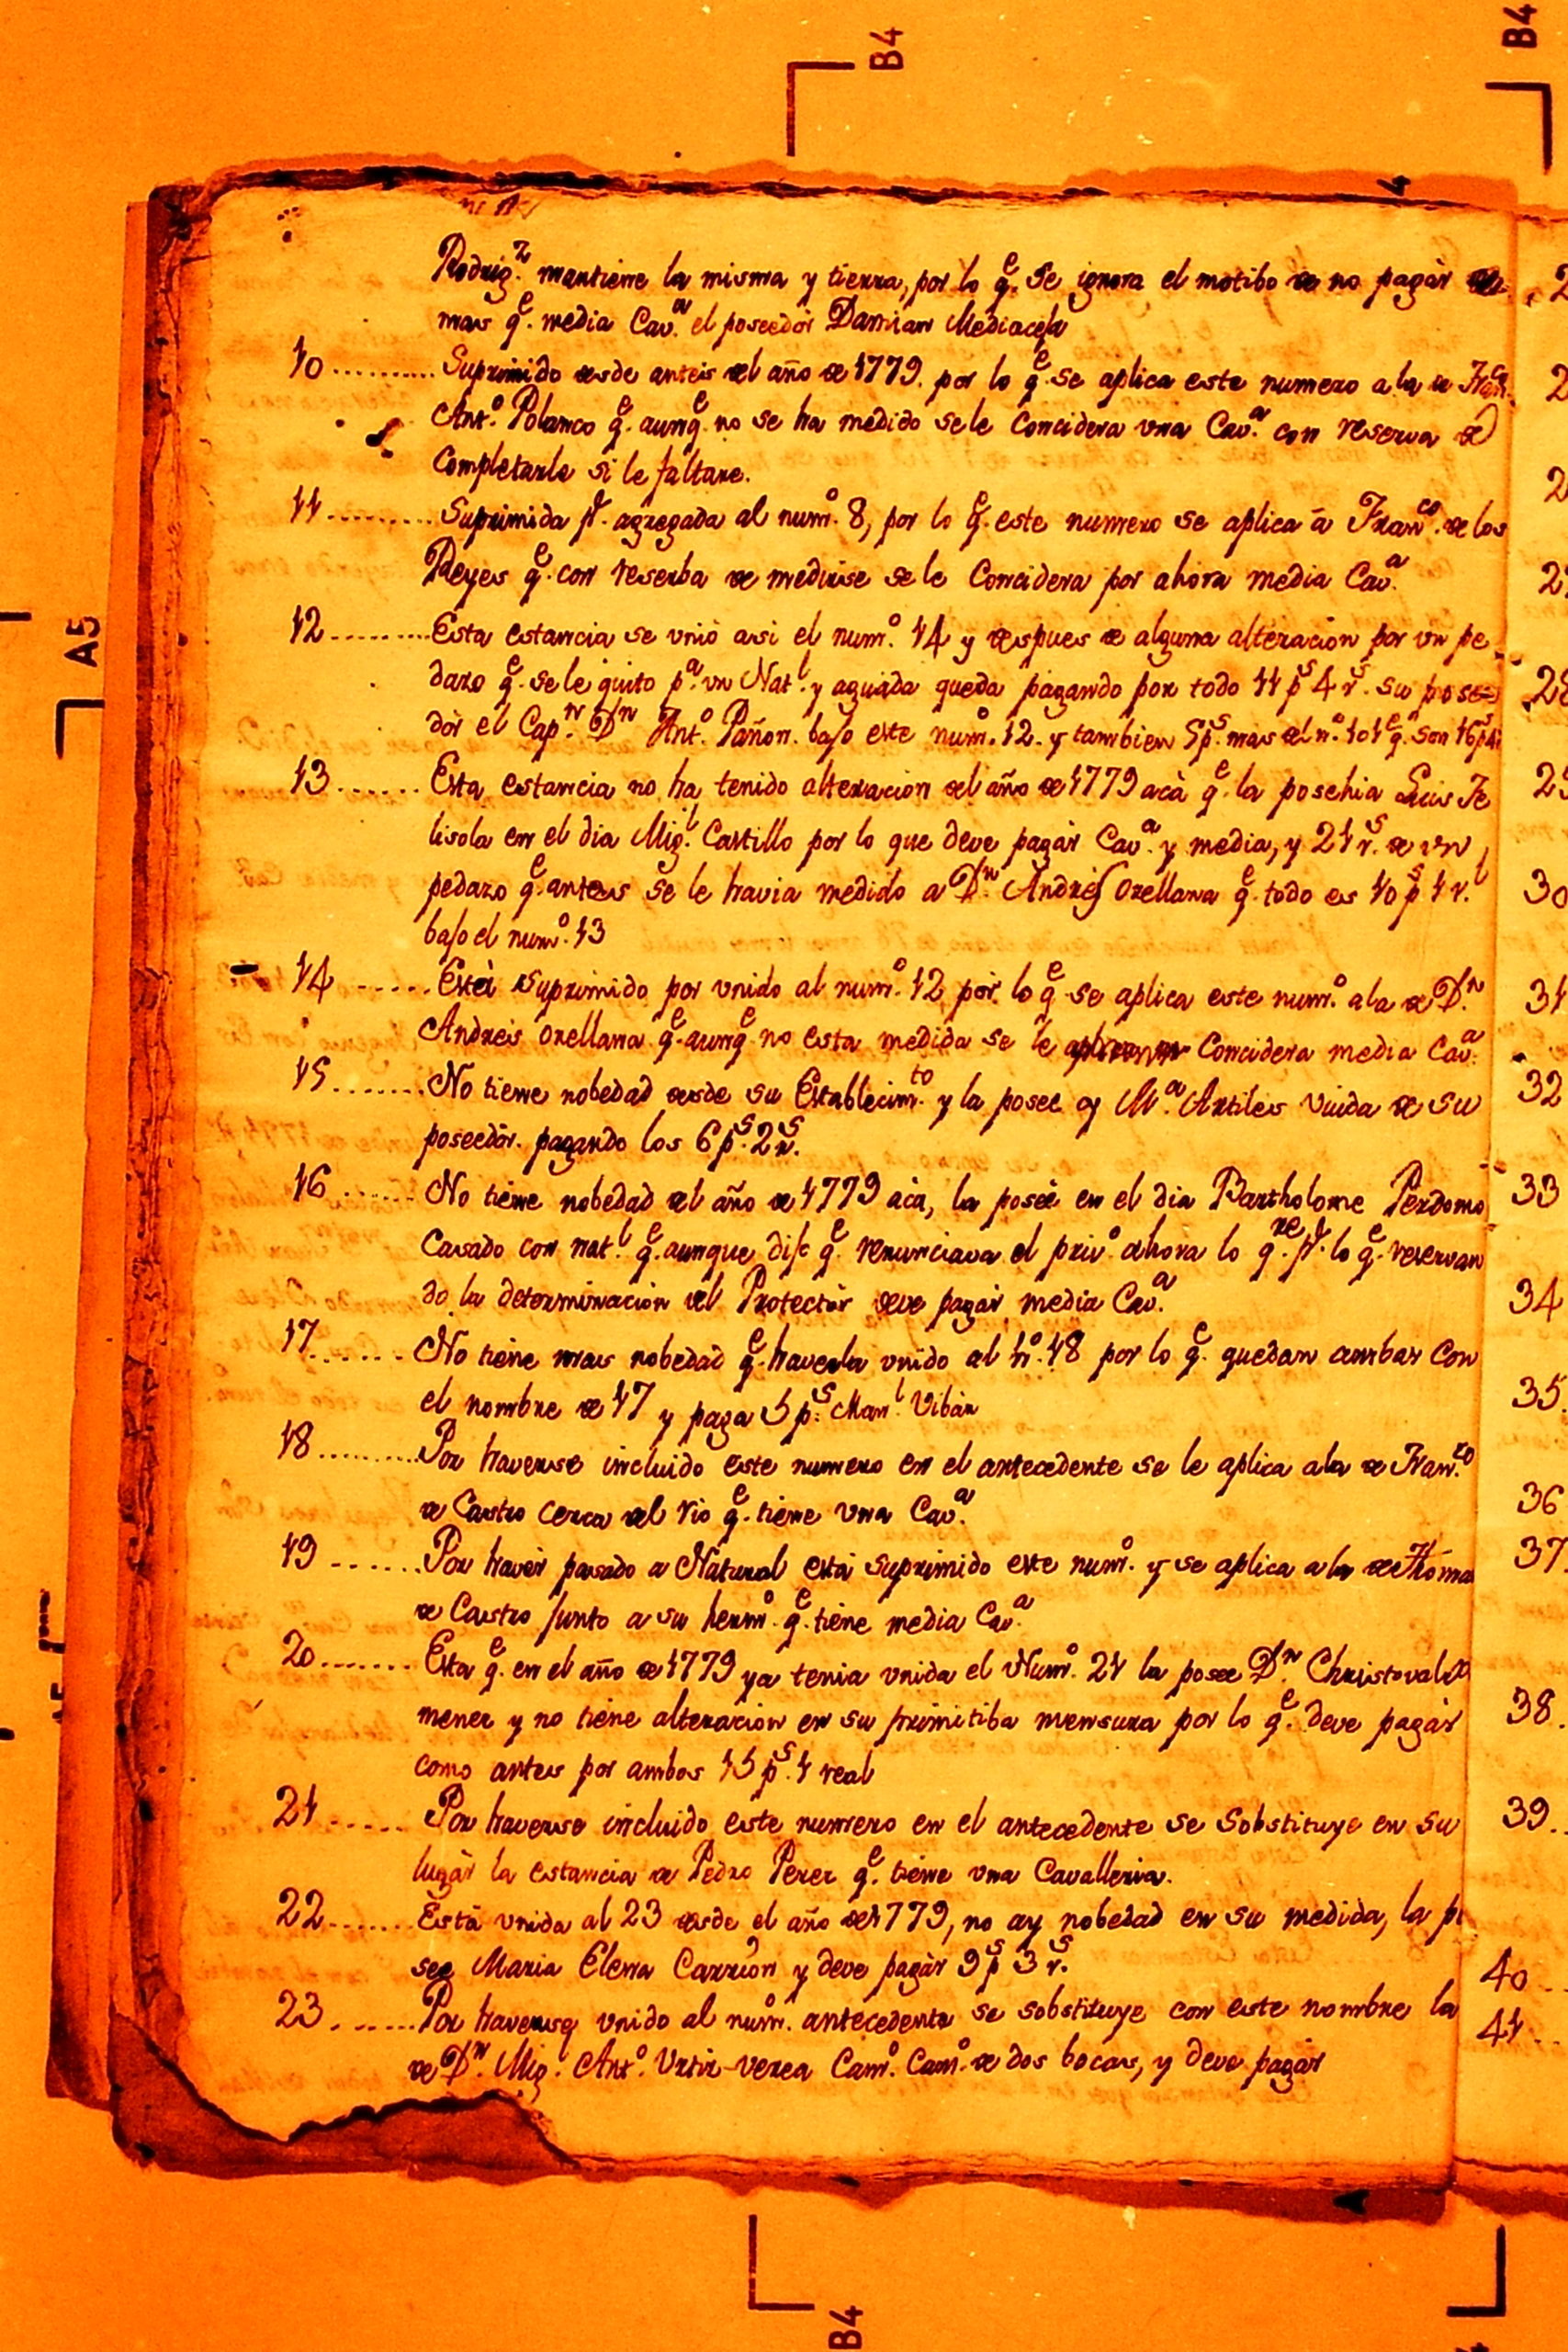 B4
B4
Rodrig.z mantiene la misma y tierra, por lo q.e Se ignora el motibo de no pagàr
mas q.e media Cav.a el poseedor Damian Mediacexa
10.......... Suprimido desde anteis del año de 1779. por lo q.e se aplica este numero a la de Fran.co
Ant.o Polanco q.e aunq.e no se ha medido sele Concidera vna Cav.a con reserva de
Completarla si le faltare.
11.......... Suprimida pr. agregada al num.o 8, por lo q.e este numero se aplica à Fran.co de los
Reyes q.e con reserba de medirse se le Concidera por ahora media Cav.a
12.......... Esta estancia se vniò asi el num.o 14 y despues de alguna alteracion por vn pe
dazo q.e se le quito p.a vn Nat.l y aguada queda pagando por todo 11 p.s 4 r.s su posee
dòr el Cap.n D.n Ant.o Pañon. bajo este num.o 12. y tambien 5 p.s mas del n.o 101 q.e son 16 p.s 4
13....... Esta estancia no ha tenido alteracion del año de 1779 acà q.e la posehia Luis Fe
lisola en el dia Mig.l Castillo por lo que deve pagàr Cav.a y media, y 21 r.s de vn
pedazo q.e anteis se le havia medido a D.n Andres Orellana q.e todo es 10 p.s 1 r.l
bajo el num.o 13
14 ...... Està Suprimido por vnido al num.o 12 por lo q.e se aplica este num.o ala de D.n
Andreis Orellana q.e aunq.e no esta medida se le Concidera media Cav.a
15........ No tiene nobedad desde su Establecim.to y la posee oy M.a Artiles Viuda de su
poseedòr. pagando los 6 p.s 2 r.s
16 ...... No tiene nobedad del año de 1779 àca, la poseè en el dia Bartholome Perdomo
Casado con nat.l q.e aunque dijo q.e renunciava el priv.o ahora lo q.re pr. lo q.e reservan
do la determinacion del Protectòr deve pagàr media Cav.a
17....... No tiene mais nobedad q.e haverla vnido al n.o 18 por lo q.e quedan ambas con
el nombre de 17 y paga 5 p.s Man.l Vibàr
18......... Por haverse incluido este numero en el antecedente se le aplica ala de Fran.co
de Castro cerca del rio q.e tiene vna Cav.a
19 ...... Por havèr pasado a Natural està suprimido este num.o y se aplica a la de Thomas
de Castro junto a su herm.o q.e tiene media Cav.a
20....... Esta q.e en el año de 1779 ya tenia vnida el Num.o 21 la posee D.n Christoval Xi
menez y no tiene alteracion en su primitiba mensura por lo q.e deve pagàr
como antes por ambos 15 p.s 1 real
21 ..... Por haverse incluido este numero en el antecedente se Sobstituye en su
lugàr la estancia de Pedro Perez q.e tiene vna Cavalleria.
22....... Està vnida al 23 desde el año de 1779, no ay nobedad en su medida, la po
see Maria Elena Carriòn y deve pagàr 9 p.s 3 r.s
23 ...... Por haverse vnido al num.o antecedente se sobstituye con este nombre la
de D.n Mig.l Ant.o Urtiz-verea Cam.o Cam.o de dos bocas, y deve pagàr
A5
30
31
32
33
34
35.
36
37.
38.
39..
40
41..
B4